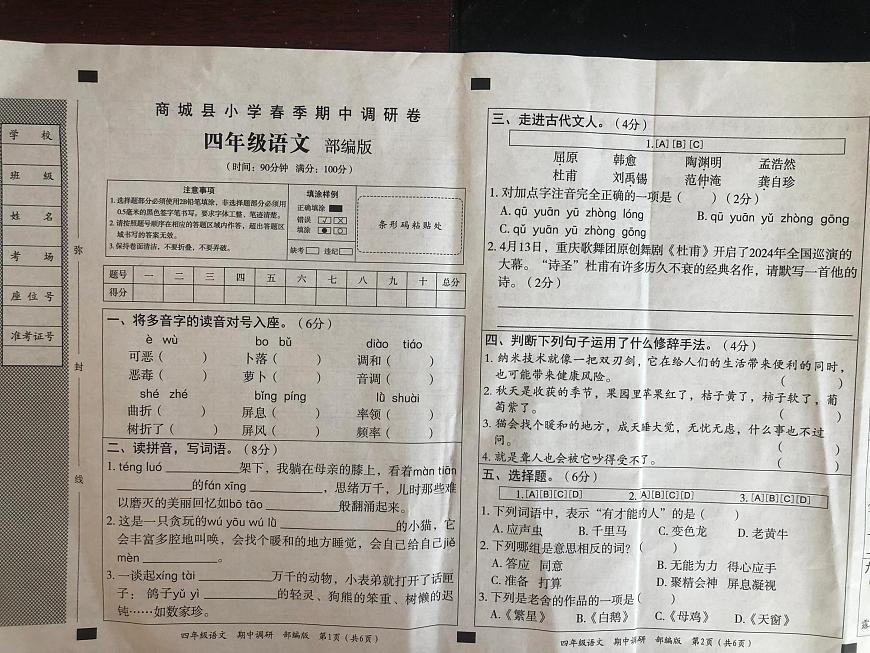 学 校
班 级
姓 名
考 场
座 位 号
准考证号
弥
封
线
商城县小学春季期中调研卷
四年级语文 部编版
（时间：90分钟 满分：100分）
注意事项
1. 选择题部分必须使用2B铅笔填涂，非选择题部分必须用
0.5毫米的黑色签字笔书写，要求字体工整、笔迹清楚。
2. 请按照题号顺序在相应的答题区域内作答，超出答题区
域书写的答案无效。
3. 保持卷面清洁，不要折叠，不要弄破。
填涂样例
正确填涂
错误
填涂
缺考 违纪
条形码粘贴处
题号 一 二 三 四 五 六 七 八 九 十 总分
得分
一、将多音字的读音对号入座。（6分）
è wù bo bǔ diào tiáo
可恶（ ） 卜落（ ） 调和（ ）
恶毒（ ） 萝卜（ ） 音调（ ）
shé zhé bǐng píng lǜ shuài
曲折（ ） 屏息（ ） 率领（ ）
树折了（ ） 屏风（ ） 频率（ ）
二、读拼音，写词语。（8分）
1. téng luó ________架下，我躺在母亲的膝上，看着màn tiān
________的fán xīng ________，思绪万千，儿时那些难
以磨灭的美丽回忆如bō tāo ________般翻涌起来。
2. 这是一只贪玩的wú yōu wú lǜ ________的小猫，它
会丰富多腔地叫唤，会找个暖和的地方睡觉，会自己给自己jiě
mèn ________。
3. 一谈起xíng tài ________万千的动物，小表弟就打开了话匣
子：鸽子yǔ yì ________的轻灵、狗熊的笨重、树懒的迟
钝……如数家珍。
四年级语文 期中调研 部编版 第1页（共6页）
三、走进古代文人。（4分）
1. [A] [B] [C]
屈原 韩愈 陶渊明 孟浩然
杜甫 刘禹锡 范仲淹 龚自珍
1. 对加点字注音完全正确的一项是（ ）（2分）
A. qū yuān yǔ zhòng lóng B. qū yuān yǔ zhòng gōng
C. qǔ yuān yǔ zhòng gōng
2. 4月13日，重庆歌舞团原创舞剧《杜甫》开启了2024年全国巡演的
大幕。“诗圣”杜甫有许多历久不衰的经典名作，请默写一首他的
诗。（2分）
四、判断下列句子运用了什么修辞手法。（4分）
1. 纳米技术就像一把双刃剑，它在给人们的生活带来便利的同时，
也可能带来健康风险。（ ）
2. 秋天是收获的季节，果园里苹果红了，桔子黄了，柿子软了，葡
萄紫了。（ ）
3. 猫会找个暖和的地方，成天睡大觉，无忧无虑，什么事也不过
问。（ ）
4. 就是聋人也会被它吵得受不了。（ ）
五、选择题。（6分）
1. [A][B][C][D] 2. A][B][C][D] 3. [A][B][C][D]
1. 下列词语中，表示“有才能的人”的是（ ）
A. 应声虫 B. 千里马 C. 变色龙 D. 老黄牛
2. 下列哪组是意思相反的词？（ ）
A. 答应 同意 B. 无能为力 得心应手
C. 准备 打算 D. 聚精会神 屏息凝视
3. 下列是老舍的作品的一项是（ ）
A.《繁星》 B.《白鹅》 C.《母鸡》 D.《天窗》
四年级语文 期中调研 部编版 第2页（共6页）